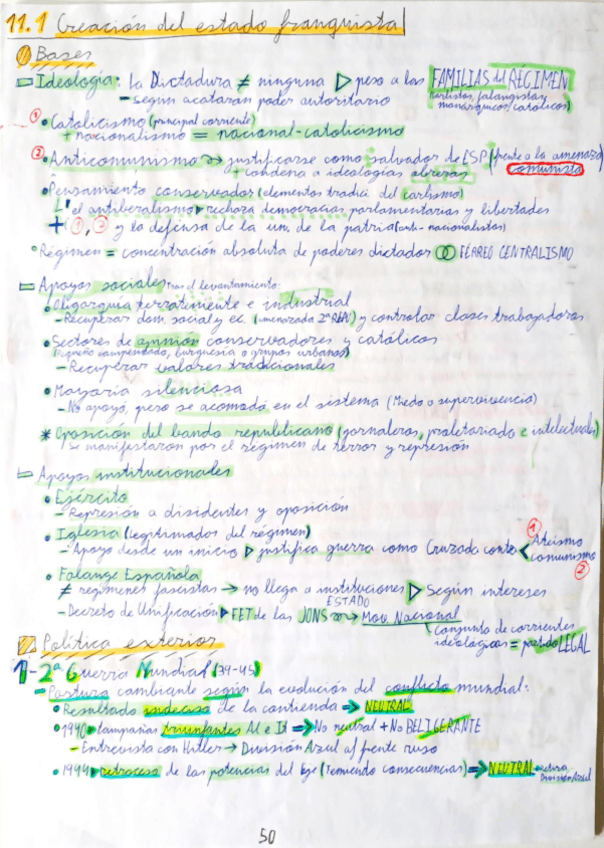 11.1 Creación del estado franquista
Bases
Ideología: La Dictadura ≠ ninguna ▷ peso a las FAMILIAS del RÉGIMEN
- Según acataran poder autoritario (carlistas, falangistas, monárquicos, católicos)
① • Catolicismo (principal corriente)
+ nacionalismo = nacional-catolicismo
② • Anticomunismo → justificarse como salvador de ESP (frente a la amenaza comunista)
+ condena a ideologías obreras
• Pensamiento conservador (elementos tradic. del carlismo)
↳ el antiliberalismo ▸ rechaza democracias parlamentarias y libertades
+ ①, ② y la defensa de la un. de la patria (anti-nacionalistas)
• Régimen = concentración absoluta de poderes dictador FÉRREO CENTRALISMO
Apoyos sociales tras el levantamiento:
• Oligarquía terrateniente e industrial
- Recuperar dom. social y ec. (amenazada 2ª REP) y controlar clases trabajadoras
• Sectores de opinión conservadores y católicos
(Pequeño campesinado, burguesía o grupos urbanos)
- Recuperar valores tradicionales
• Mayoría silenciosa
- No apoyó, pero se acomodó en el sistema (Miedo o supervivencia)
* Oposición del bando republicano (jornaleros, proletariado e intelectuales)
Se manifestaron por el régimen de terror y represión
Apoyos institucionales
• Ejército
- Represión a disidentes y oposición
• Iglesia (legitimados del régimen)
- Apoyo desde un inicio ▷ justifica guerra como Cruzada contra < Ateísmo ① comunismo ②
• Falange Española
≠ regímenes fascistas → no llega a instituciones ESTADO ▷ Según intereses
- Decreto de Unificación ▸ FET de las JONS → Mov. Nacional
(Conjunto de corrientes ideológicas = partido LEGAL
Política exterior
1- 2ª Guerra Mundial (39-45)
- Postura cambiante según la evolución del conflicto mundial:
• Resultado indeciso de la contienda ⇒ NEUTRAL
• 1940 ▸ Campañas triunfantes Al e It ⇒ No neutral + No BELIGERANTE
- Entrevista con Hitler → División Azul al frente ruso
• 1944 ▸ Retroceso de las potencias del Eje (Temiendo consecuencias) ⇒ NEUTRAL - retira División Azul
50